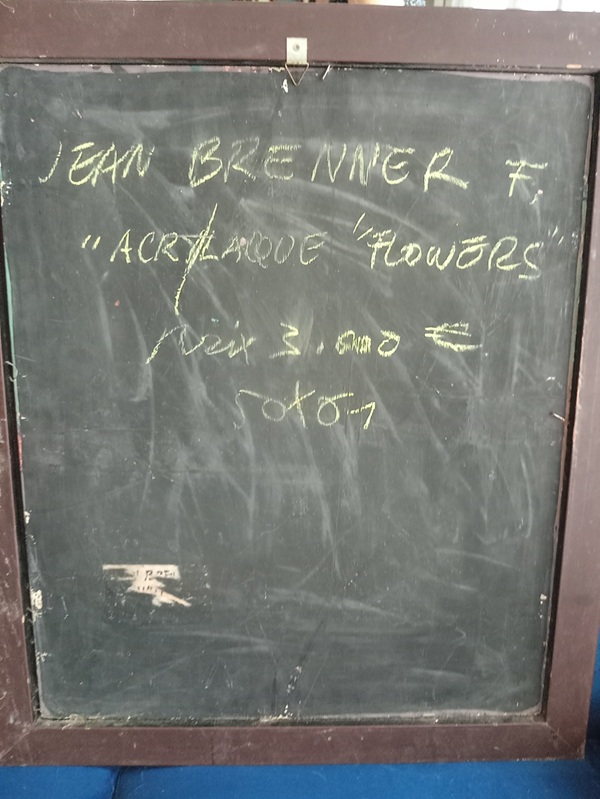 JEAN BRENNER F.
"ACRYLAQUE "FLOWERS"
prix 3.000 €